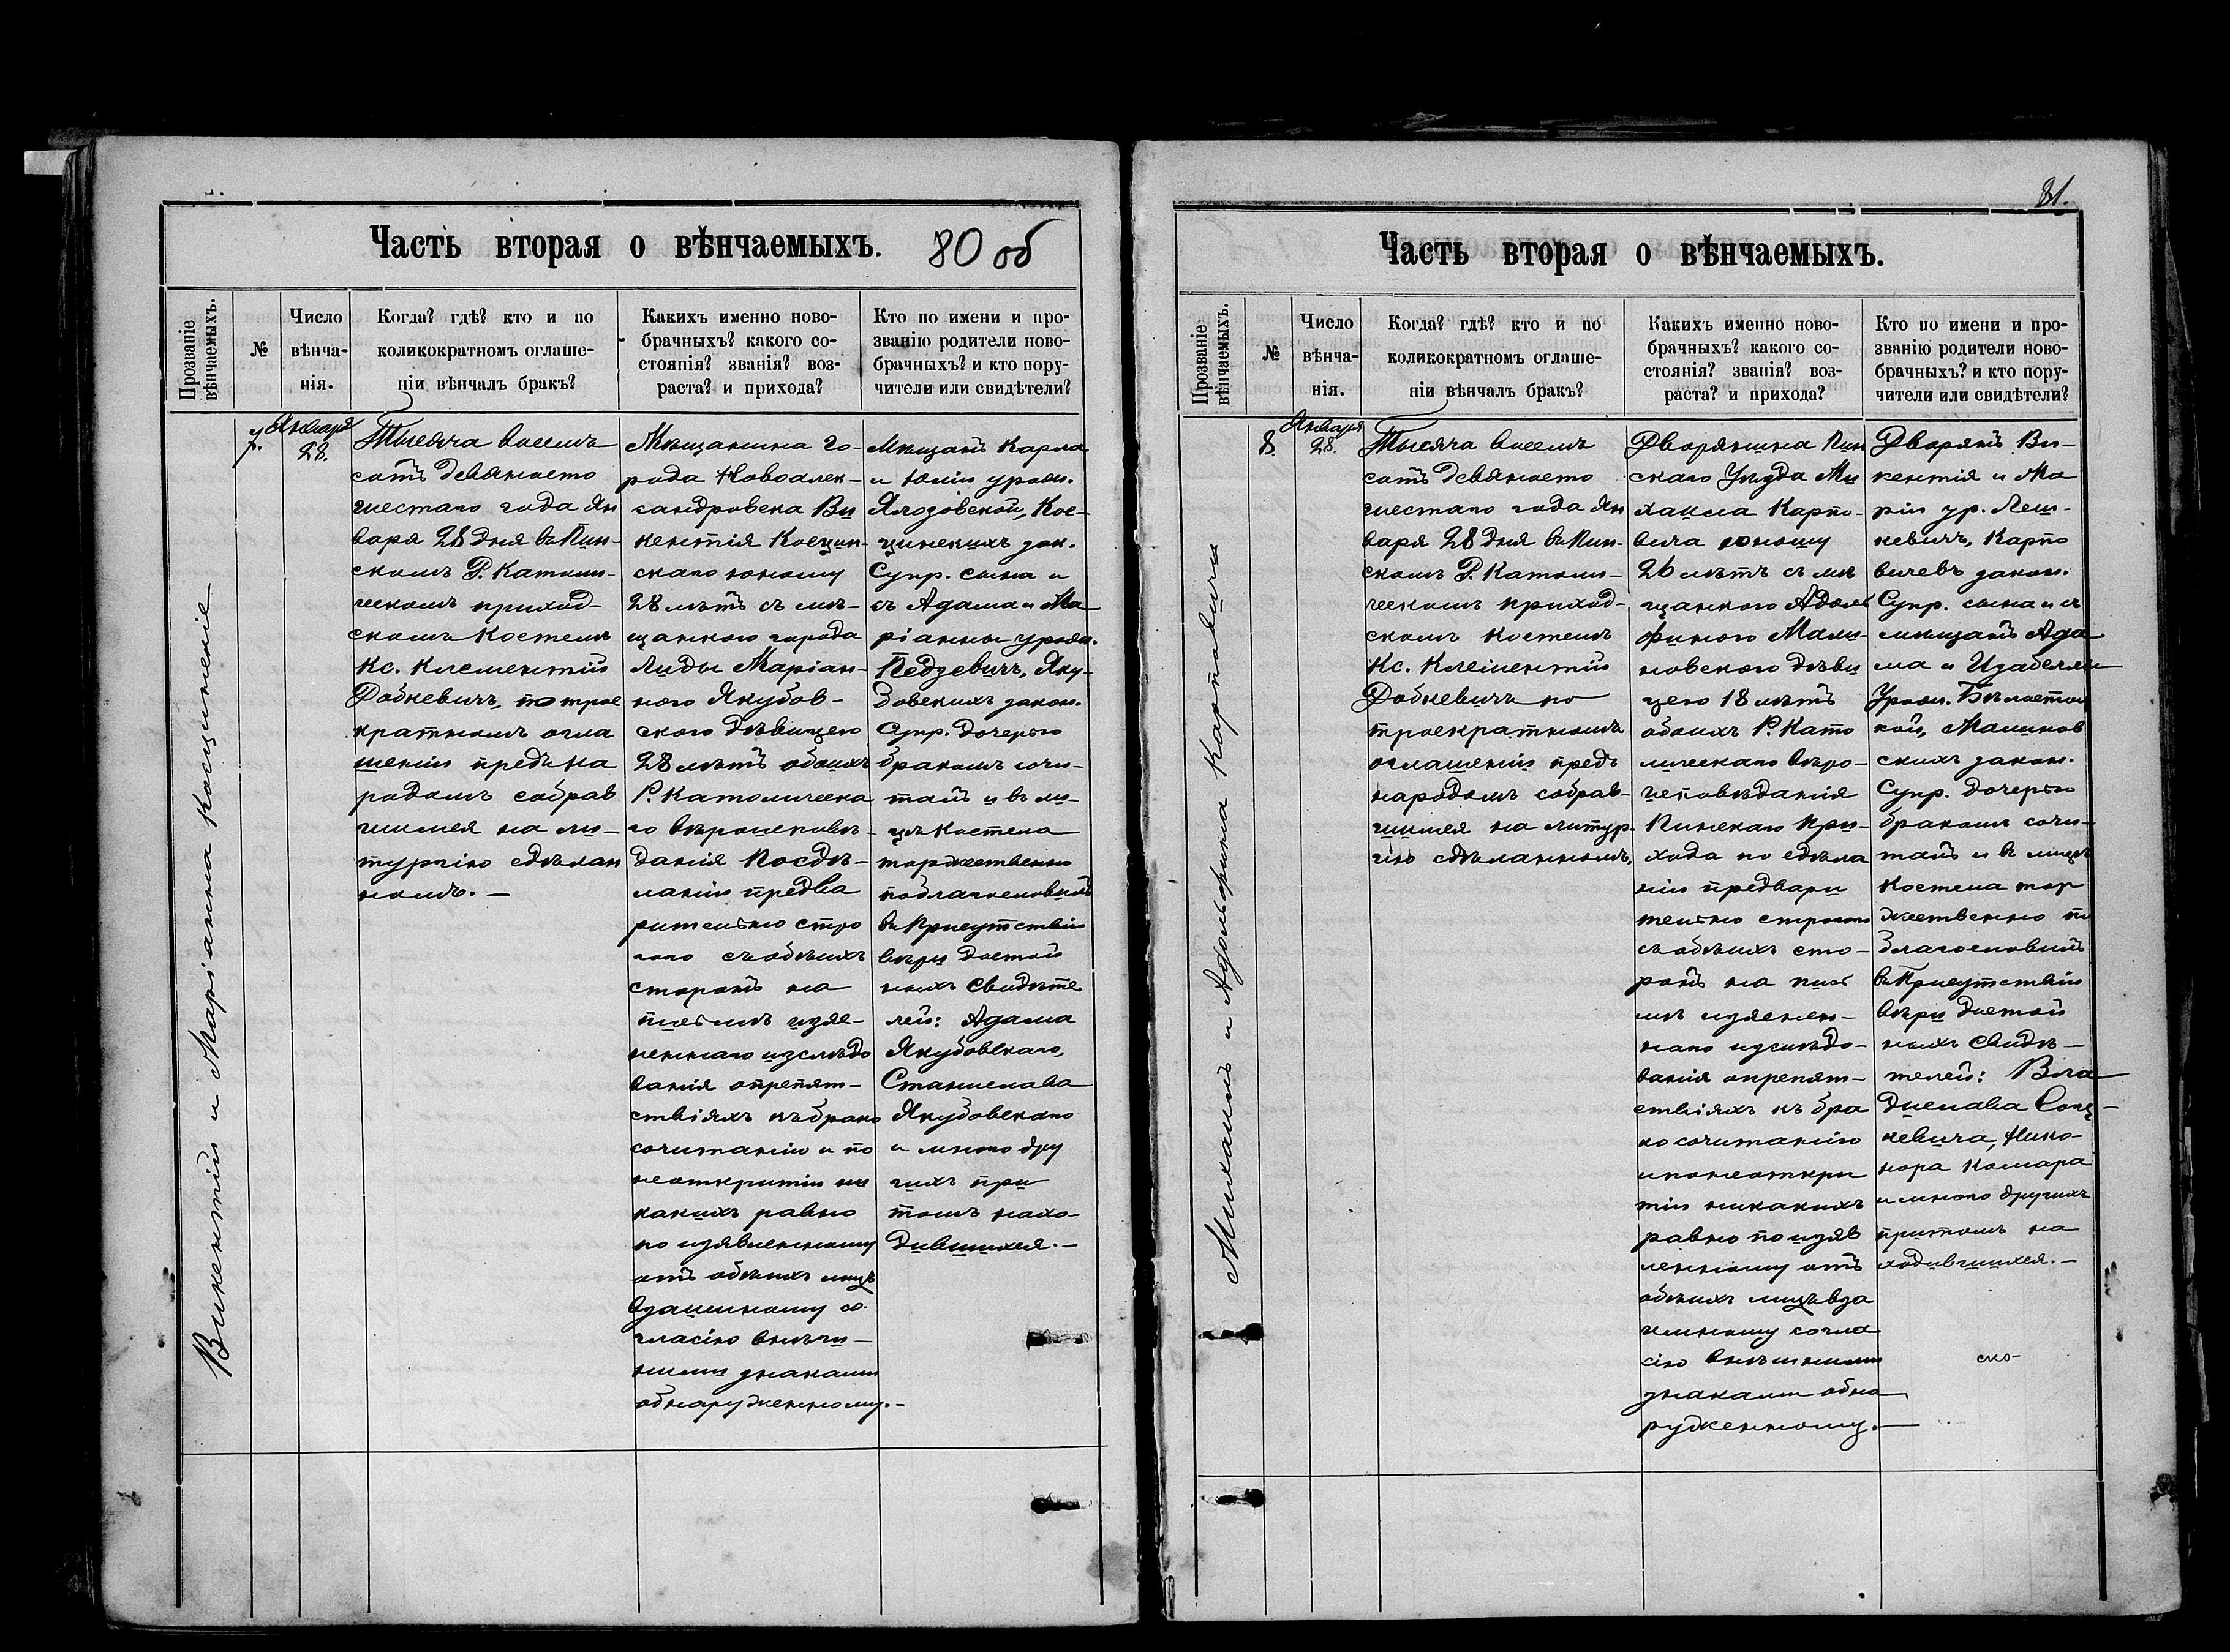 Часть вторая о вѣнчаемыхъ.
80 об
Прозваніе вѣнчаемыхъ.
№
Число
вѣнча-
нія.
Когда? гдѣ? кто и по
коликократномъ оглаше-
ніи вѣнчалъ бракъ?
Какихъ именно ново-
брачныхъ? какого со-
стоянія? званія? воз-
раста? и прихода?
Кто по имени и про-
званію родители ново-
брачныхъ? и кто пору-
чители или свидѣтели?
Викентій и Маріанна Косцинскіе
7.
Января
28.
Тысяча восемь
сотъ девяносто
шестаго года Ян
варя 28 дня въ Пин-
скомъ Р. Католи-
ческомъ приход-
скомъ Костелѣ
Кс. Клементій
Добкевичъ, по трое
кратномъ огла
шеніи предъ на
родомъ собрав
шимся на ли-
тургію сдѣлан
номъ. —
Мѣщанина го-
рода Новоалек-
сандровска Ви
кентія Косцин-
скаго юношу
28 лѣтъ съ мѣ-
щанкою города
Лиды Маріан-
ною Якубов-
скою дѣвицею
28 лѣтъ обоихъ
Р. Католическа
го вѣроисповѣ-
данія посдѣ-
ланіи предва
рительно стро
гого съ обѣихъ
сторонъ на
письмѣ изяс-
неннаго изслѣдо
ванія опрепят-
ствіяхъ къ брако
сочитанію и по
неоткрытіи ни
какихъ равно
по изявленному
отъ обѣихъ лицъ
взаимному со-
гласію внѣчи-
ними знаками
обнаруженному. —
Мѣщанъ Карла
и Юліи урож.
Ялозовской, Кос-
цинскихъ зак.
Супр. сына и
съ Адама и Ма
ріанны урож.
Педзевичъ, Яку-
бовскихъ закон.
Супр. дочерью
бракомъ сочи-
талъ и въ ли-
цѣ Костела
торжественно
поблагословилъ
въ Присутствіи
вѣри достой
ныхъ Свидѣте
лей: Адама
Якубовскаго,
Станислава
Якубовскаго
и много дру
гихъ при
томъ нахо-
дившихся. —
81.
Часть вторая о вѣнчаемыхъ.
Прозваніе вѣнчаемыхъ.
№
Число
вѣнча-
нія.
Когда? гдѣ? кто и по
коликократномъ оглаше-
ніи вѣнчалъ бракъ?
Какихъ именно ново-
брачныхъ? какого со-
стоянія? званія? воз-
раста? и прихода?
Кто по имени и про-
званію родители ново-
брачныхъ? и кто пору-
чители или свидѣтели?
Михаилъ и Адольфина Карповича
8.
Января
28.
Тысяча восемь
сотъ девяносто
шестаго года Ян
варя 28 дня въ Пин-
скомъ Р. Католи-
ческомъ приход-
скомъ костелѣ
Кс. Клементій
Добкевичъ по
троекратномъ
оглашеніи предъ
народомъ собрав-
шимся на литур-
гію сдѣланномъ.
Дворянина Пин
скаго Уѣзда Ми
хаила Карпо-
вича юношу
26 лѣтъ съ мѣ
щанкою Адоль
финою Мали-
новскою дѣви
цею 18 лѣтъ
обоихъ Р. Като
лическаго вѣро-
исповѣданія
Пинскаго При-
хода по сдѣла
ніи предвари
тельно строгого
съ обѣихъ сто-
ронъ на пись
мѣ изяснен-
наго изслѣдо-
ванія опрепят-
ствіяхъ къ бра
ко сочитанію
и понеоткры
тіи никакихъ
равно по изяв
ленному отъ
обѣихъ лицъ вза
имному согла
сію внѣшними
знаками обна
руженному. —
Дворянъ Ви-
кентія и Ма
ріи ур. Леш-
кевичъ, Карпо
вичевъ закон.
Супр. сына и съ
мѣщанъ Ада
ма и Изабелли
Урож. Бѣлостоц
кой, Малинов
скихъ закон.
Супр. дочерью
бракомъ сочи-
талъ и въ лицѣ
Костела тор
жественно по
благословилъ
въ Присутствіи
вѣри достой
ныхъ Свидѣ-
телей: Вла
дислава Соц-
кевича, Нико-
нора Комара
и много другихъ
притомъ на
ходившихся. —